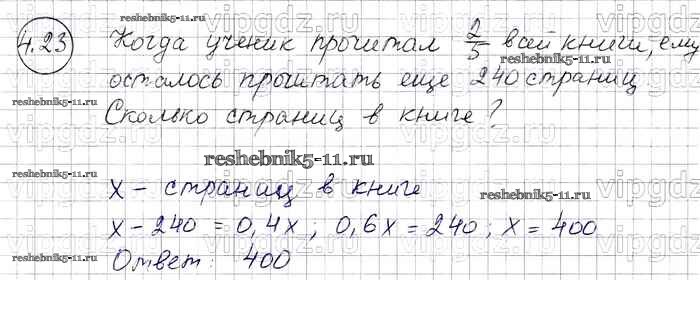 4.23 Когда ученик прочитал 2/5 всей книги, ему
осталось прочитать еще 240 страниц
Сколько страниц в книге?
x – страниц в книге
x – 240 = 0,4x ; 0,6x = 240 ; x = 400
Ответ: 400
reshebnik5-11.ru
reshebnik5-11.ru
reshebnik5-11.ru
reshebnik5-11.ru
reshebnik5-11.ru
reshebnik5-11.ru
reshebnik5-11.ru
vipgdz.ru